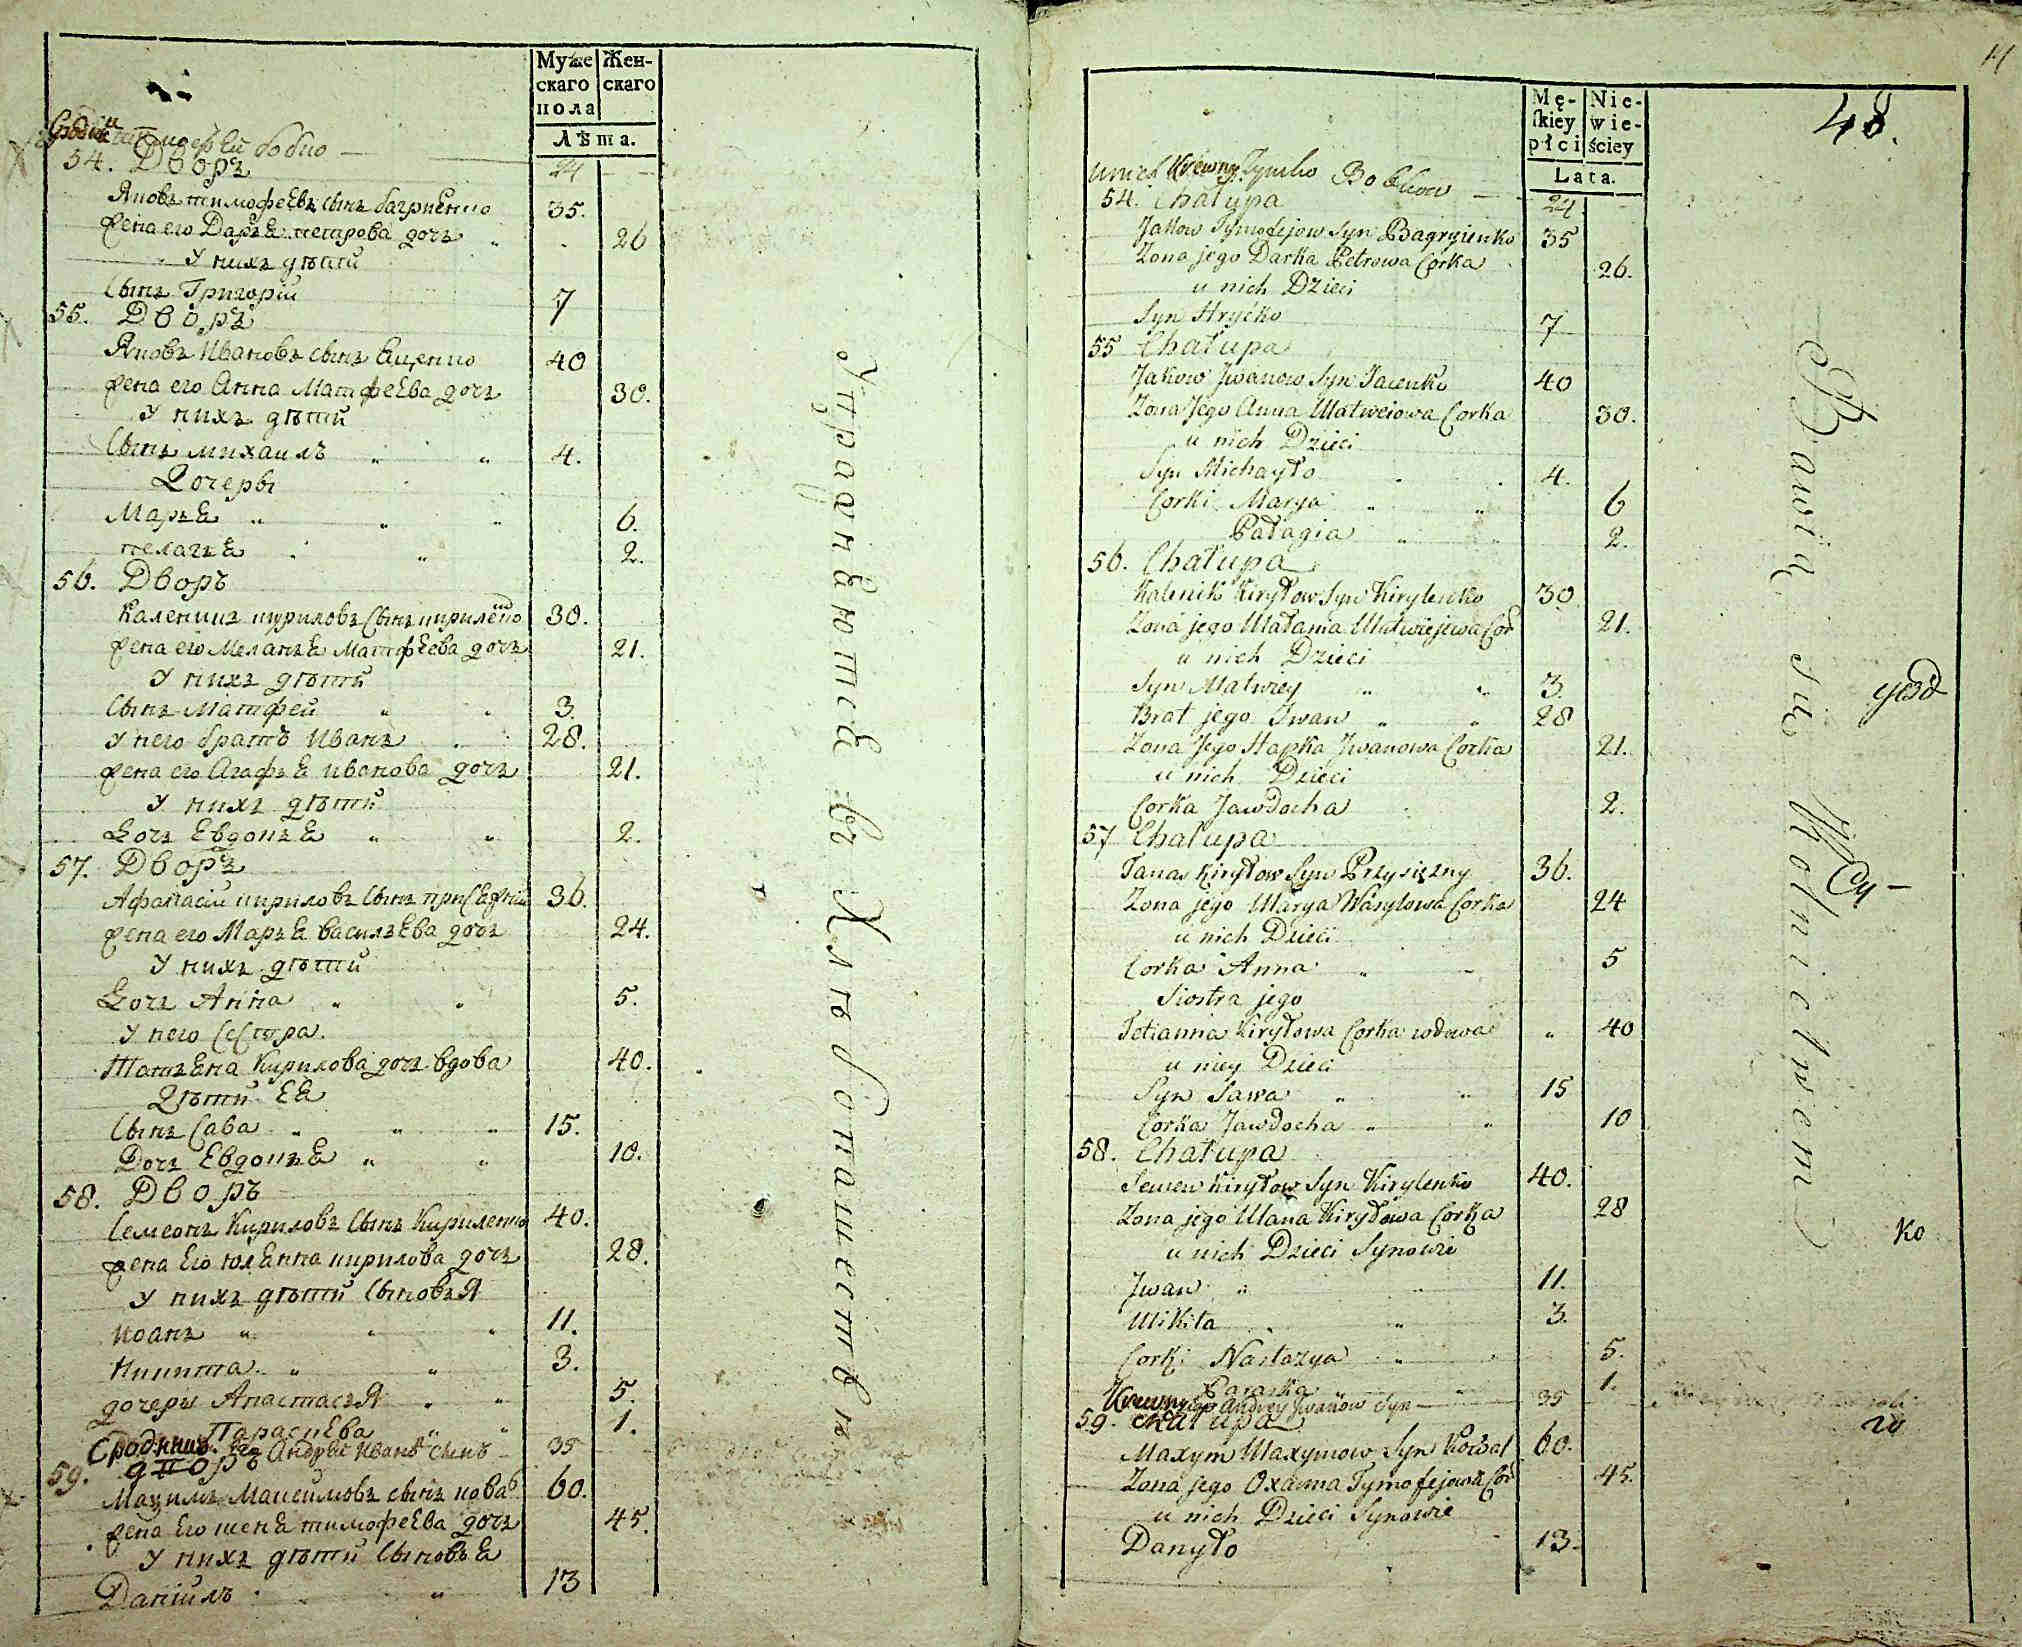 Муже
скаго
пола
Жен-
скаго
Лѣта.
24
54. Дворъ
Яковъ тимофеевъ сынъ багриенко 35.
жена его Дарья петрова дочь 26
У нихъ дѣти
Сынъ Григорій 7
55. Дворъ
Яковъ Ивановъ сынъ Яценко 40
жена его Анна Матфеева дочь 30.
У нихъ дѣти
Сынъ михаилъ 4.
Дочеры
Марья 6.
пелагья 2.
56. Дворъ
Каленикъ кириловъ Сынъ кириленко 30.
жена его Меланья Матфеева дочь 21.
У нихъ дѣти
Сынъ Матфей 3.
У него братъ Иванъ 28.
жена его Агафья иванова дочь 21.
У нихъ дѣти
Дочь Евдокья 2.
57. Дворъ
Афанасій кириловъ Сынъ присяжній 36.
жена его Марья васильева дочь 24.
У нихъ дѣти
Дочь Анна 5.
У него Сестра
Татьяна Кирилова дочь вдова 40.
Дѣти Ея
Сынъ Сава 15.
Дочь Евдокья 10.
58. Дворъ
Семеонъ Кириловъ Сынъ Кириленко 40.
жена Его юлянна кирилова дочь 28.
У нихъ дѣти Сыновья
иоанъ 11.
Никита 3.
дочеры Анастасья 5.
Параскева 1.
Сродникъ его Андрей Ивановъ сынъ 35
59. дворъ
Мацимъ Максимовъ сынъ ковал 60.
жена Его ксеня тимофеева дочь 45.
У нихъ дѣти Сыновья
Даніилъ 13
Упражняются въ Хлѣбопашествѣ
14
48.
Mę-
skiey
płci
Nie-
wie-
ściey
Lata.
unich Krewny Tymko Bobkow 24
54. Chałupa
Jakow Tymofejow Syn Bagryienko 35
Zona jego Darka Petrowa Corka 26.
u nich Dzieci
Syn Hrycko 7
55 Chałupa
Jakow Jwanow Syn Jacenko 40
Zona Jego Anna Matweiowa Corka 30.
u nich Dzieci
Syn Michayło 4.
Corki Marya 6
Pałagia 2.
56. Chałupa
Kalenik Kiryłow Syn Kirylenko 30
Zona jego Małania Matwiejewa Cor 21.
u nich Dzieci
Syn Matwiey 3.
Brat jego Jwan 28
Zona Jego Hapka Jwanowa Corka 21.
u nich Dzieci
Corka Jawdocha 2.
57 Chałupa
Tanas Kiryłow Syn Przysiężny 36.
Zona jego Marya Wasylowa Corka 24
u nich Dzieci
Corka Anna 5
Siostra jego
Tetianna Kiryłowa Corka wdowa 40
u niey Dzieci
Syn Sawa 15
Corka Jawdocha 10
58. Chałupa
Semen Kiryłow Syn Kirylenko 40.
Zona jego Ulana Kiryłowa Corka 28
u nich Dzieci Synowie
Jwan 11.
Mikita 3.
Corki Nastazya 5.
Paraska 1.
Krewny jego Andrey Jwanow Syn 35
59. Chałupa
Maxym Maxymow Syn Kowal 60.
Zona jego Oxana Tymofejowa Cor 45.
u nich Dzieci Synowie
Danyło 13.
Bawią się Rolnictwem
ко